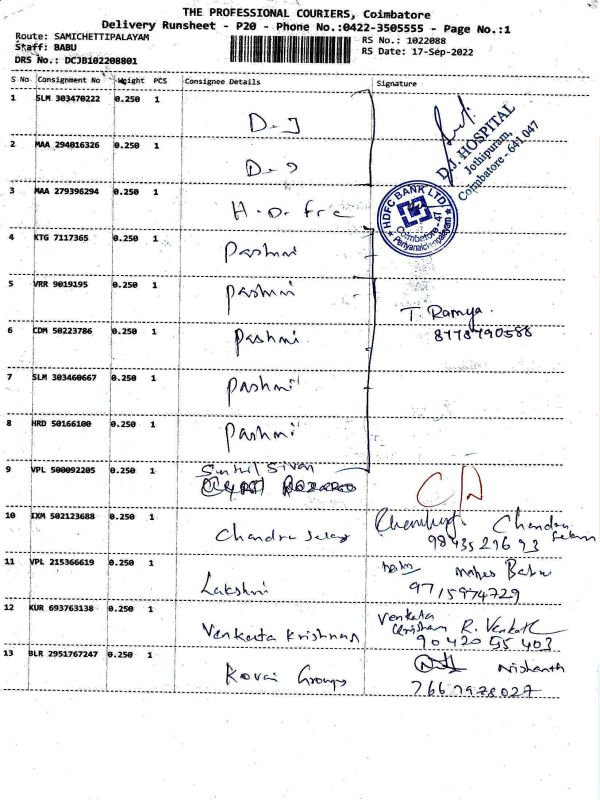 THE PROFESSIONAL COURIERS, Coimbatore
Delivery Runsheet - P20 - Phone No.:0422-3505555 - Page No.:1
Route: SAMICHETTIPALAYAM
Staff: BABU
DRS No.: DCJB102208801
RS No.: 1022088
RS Date: 17-Sep-2022
S No Consignment No Weight PCS Consignee Details Signature
1 SLM 303470222 0.250 1 D.J
D.J. HOSPITAL
Jothipuram,
Coimbatore - 641 047
2 MAA 294016326 0.250 1
3 MAA 279396294 0.250 1
HDFC BANK LTD
Coimbatore - 47
4 KTG 7117365 0.250 1 Pashmi
5 VRR 9019195 0.250 1 Pashmi
T. Ramya.
8778790588
6 CDM 50223786 0.250 1 Pashmi
7 SLM 303460667 0.250 1 Pashmi
8 HRD 50166100 0.250 1 Pashmi
9 VPL 500092205 0.250 1 Sunil Sivan
10 IXM 502123688 0.250 1 Chandra Selag
Chandra
9843521693
11 VPL 215366619 0.250 1 Lakshmi
Mahes Babu
9715974729
12 KUR 693763138 0.250 1 Venkata Krishnan
Venkata
Krishnan R. Venkat
9042055403
13 BLR 2951767247 0.250 1 Kovai Groups
Nishanth